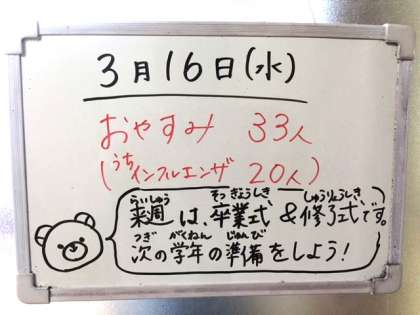 3月16日(水)
おやすみ 33人
(うちインフルエンザ 20人)
らいしゅう そつぎょうしき しゅうりょうしき
来周は、卒業式&修了式です。
つぎ がくねん じゅんび
次の学年の準備をしよう!